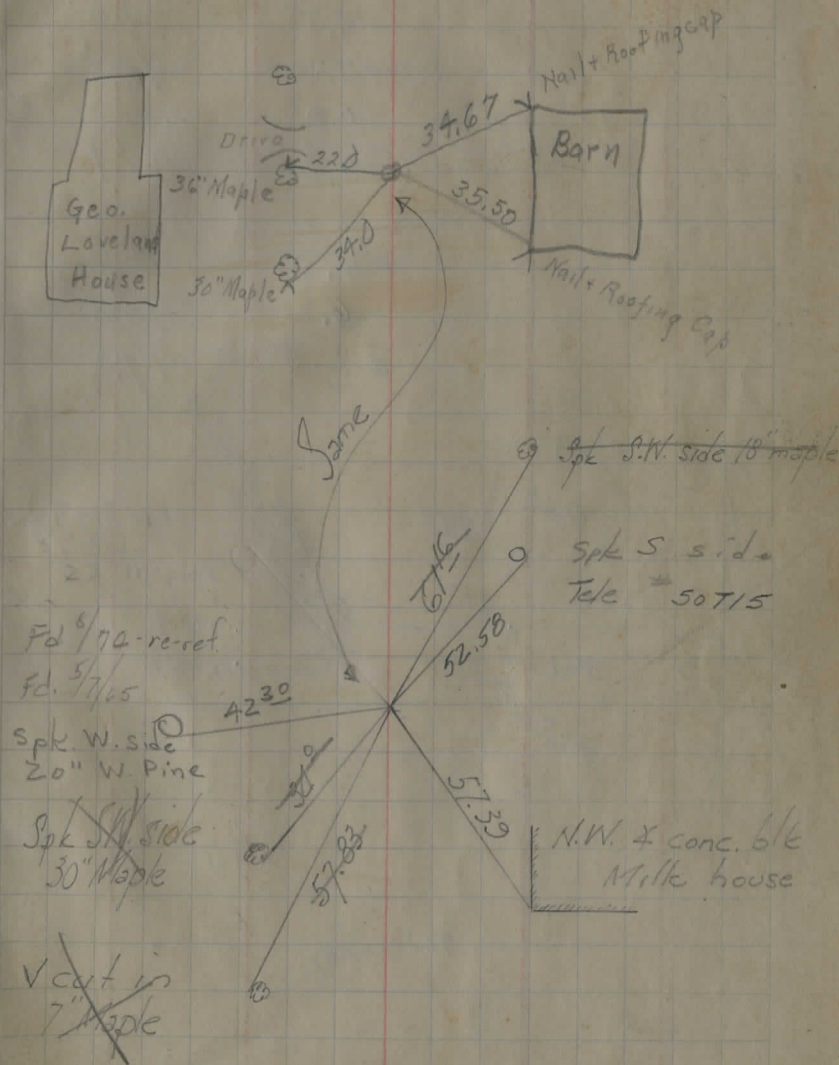 Nail + Roofing Cap
34.67
Barn
Drive
22.0
36" Maple
35.50
Geo.
Loveland
House
34.0
30" Maple
Nail + Roofing Cap
Same
Spk S.W. side 18" maple
67.16
Spk S side
Tele # 50T15
52.58
Fd 6/74 - re-ref.
Fd. 5/7/65
42.30
Spk. W. side
20" W. Pine
57.39
Spk S.W. side
30" Maple
57.83
N.W. ∡ conc. blk
Milk house
V cut in
7" Maple